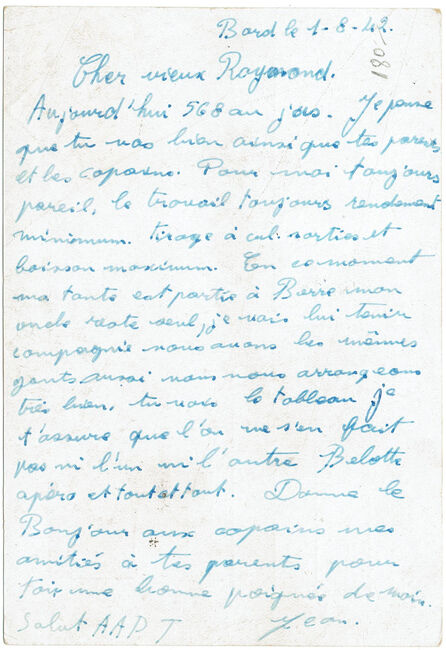 Bord le 1-8-42.
180
Cher vieux Raymond.
Aujourd'hui 568 au jus. Je pense
que tu vas bien ainsi que tes parents
et les copains. Pour moi toujours
pareil, le travail toujours rendement
minimum. tirage à cul. sorties et
boisson maximum. En ce moment
ma tante est partie à Berre mon
oncle reste seul, je vais lui tenir
compagnie nous avons les mêmes
gouts aussi nous nous arrangeons
très bien, tu vois le tableau je
t'assure que l'on ne s'en fait
pas ni l'un ni l'autre Belotte
apéro et tout et tout. Donne le
Bonjour aux copains mes
amitiés à tes parents pour
toi une bonne poignée de main.
Salut AAPT Jean.